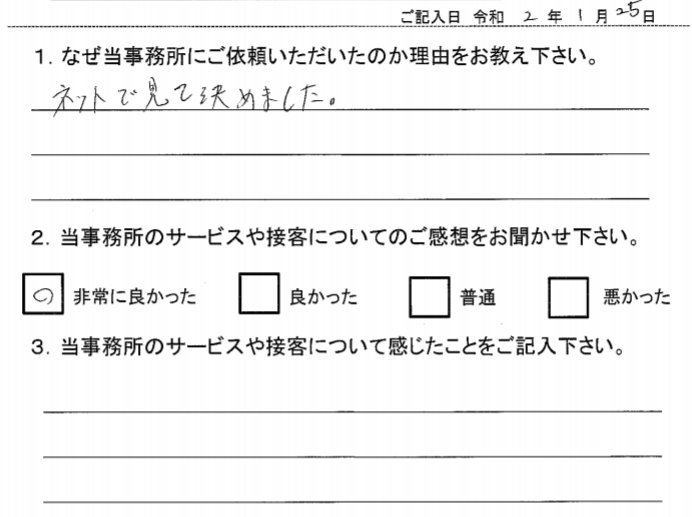 ご記入日 令和 2 年 1 月 25 日
1. なぜ当事務所にご依頼いただいたのか理由をお教え下さい。
ネットで見て決めました。
2. 当事務所のサービスや接客についてのご感想をお聞かせ下さい。
非常に良かった 良かった 普通 悪かった
3. 当事務所のサービスや接客について感じたことをご記入下さい。